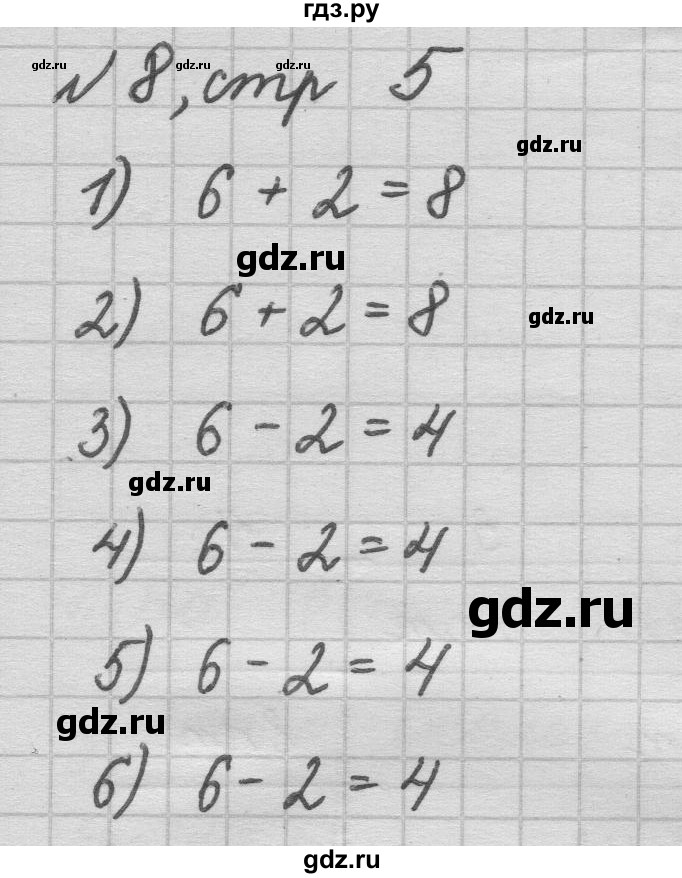 гдз.ру
gdz.ru gdz.ru gdz.ru
№ 8, стр 5
gdz.ru
1) 6 + 2 = 8
gdz.ru
2) 6 + 2 = 8
gdz.ru
3) 6 - 2 = 4
gdz.ru
4) 6 - 2 = 4
gdz.ru
5) 6 - 2 = 4
gdz.ru
6) 6 - 2 = 4
gdz.ru